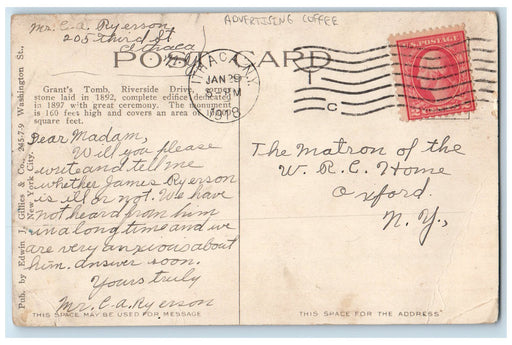 ADVERTISING COFFEE
Mr. C. A. Ryerson
205 Third St
Ithaca
N.Y.
POST CARD
ITHACA, N.Y.
JAN 29
PM
1918
C
U.S. POSTAGE
Grant's Tomb, Riverside Drive, corner
stone laid in 1892, complete edifice dedicated
in 1897 with great ceremony. The monument
is 160 feet high and covers an area of
square feet.
Pub. by Edwin J. Gillies & Co., 245-7-9 Washington St.,
New York City.
Dear Madam,
Will you please
write and tell me
whether James Ryerson
is ill or not. We have
not heard from him
in a long time and we
are very anxious about
him. answer soon.
Yours truly
Mr. C. A. Ryerson
The Matron of the
W. R. C. Home
Oxford.
N. Y.,
THIS SPACE MAY BE USED FOR MESSAGE
THIS SPACE FOR THE ADDRESS